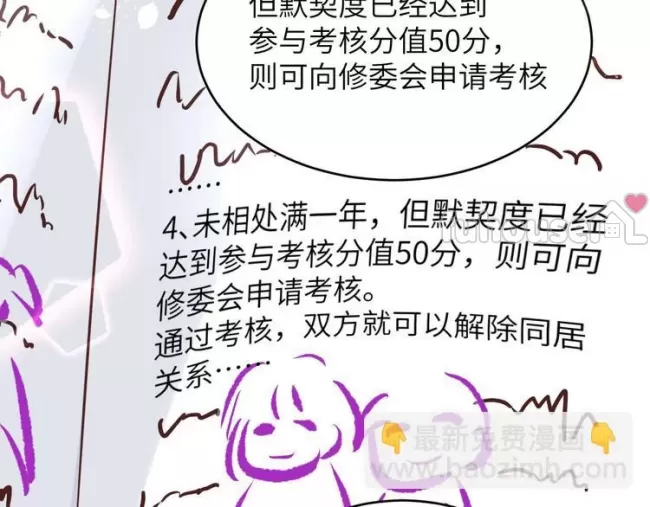 但默契度已经达到
参与考核分值50分，
则可向修委会申请考核
……
4、未相处满一年，但默契度已经
达到参与考核分值50分，则可向
修委会申请考核。
通过考核，双方就可以解除同居
关系……
👇最新免费漫画👇
www.baozimh.com